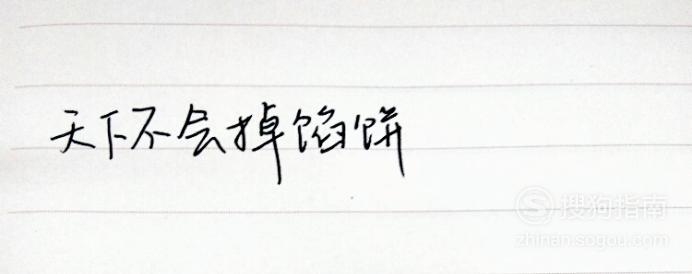 天下不会掉馅饼
搜狗指南
zhinan.sogou.com